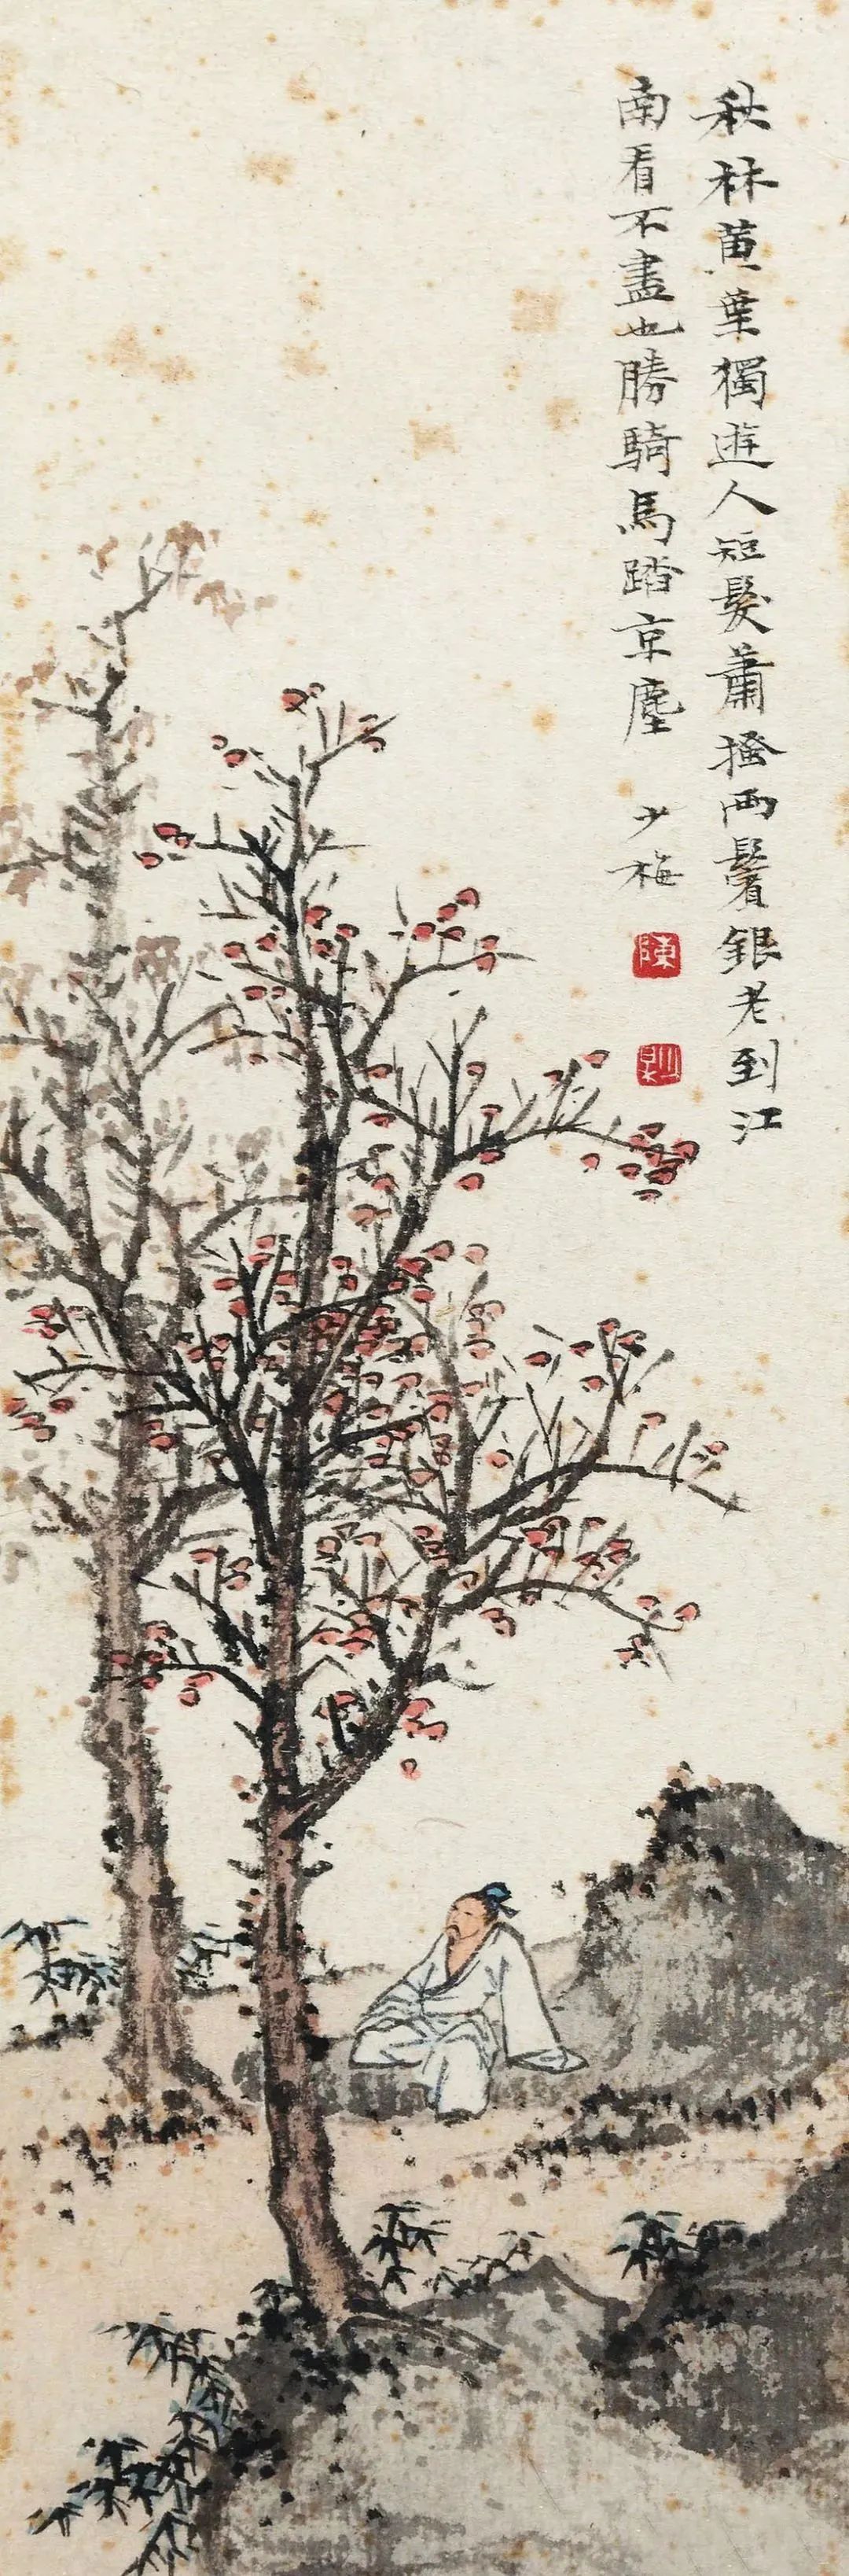 秋林黄葉獨遊人短髮蕭搔兩鬢銀老到江
南看不盡也勝騎馬踏京塵
少梅
陳